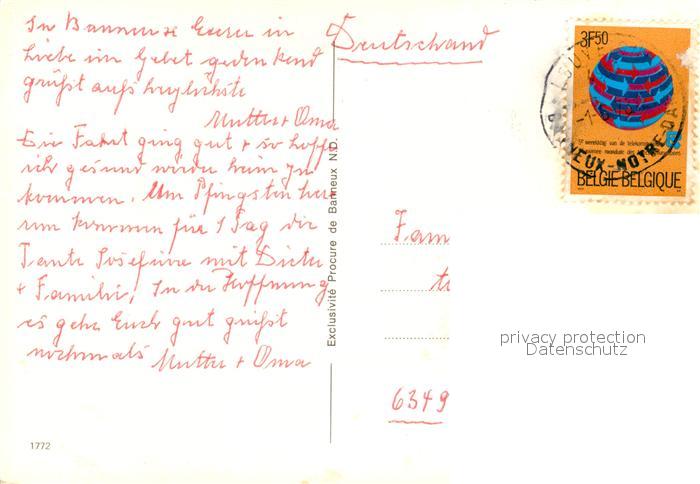 In Banneux Eurer in
Liebe im Gebet gedenkend
grüßt aufs herzlichste
Mutter + Oma
Die Fahrt ging gut + so hoffe
ich gesund wieder heim zu
kommen. Um Pfingsten her
um kommen für 1 Tag die
Tante Josefine mit Dieter
+ Familie, In der Hoffnung
es gehe Euch gut grüßt
nochmals Mutter + Oma
1772
Exclusivité Procure de Banneux N.D.
Deutschland
3F50
5e werelddag van de telekommunikatie
journée mondiale des
BELGIE BELGIQUE
BANNEUX-NOTRE-DA
Fam
6349
privacy protection
Datenschutz